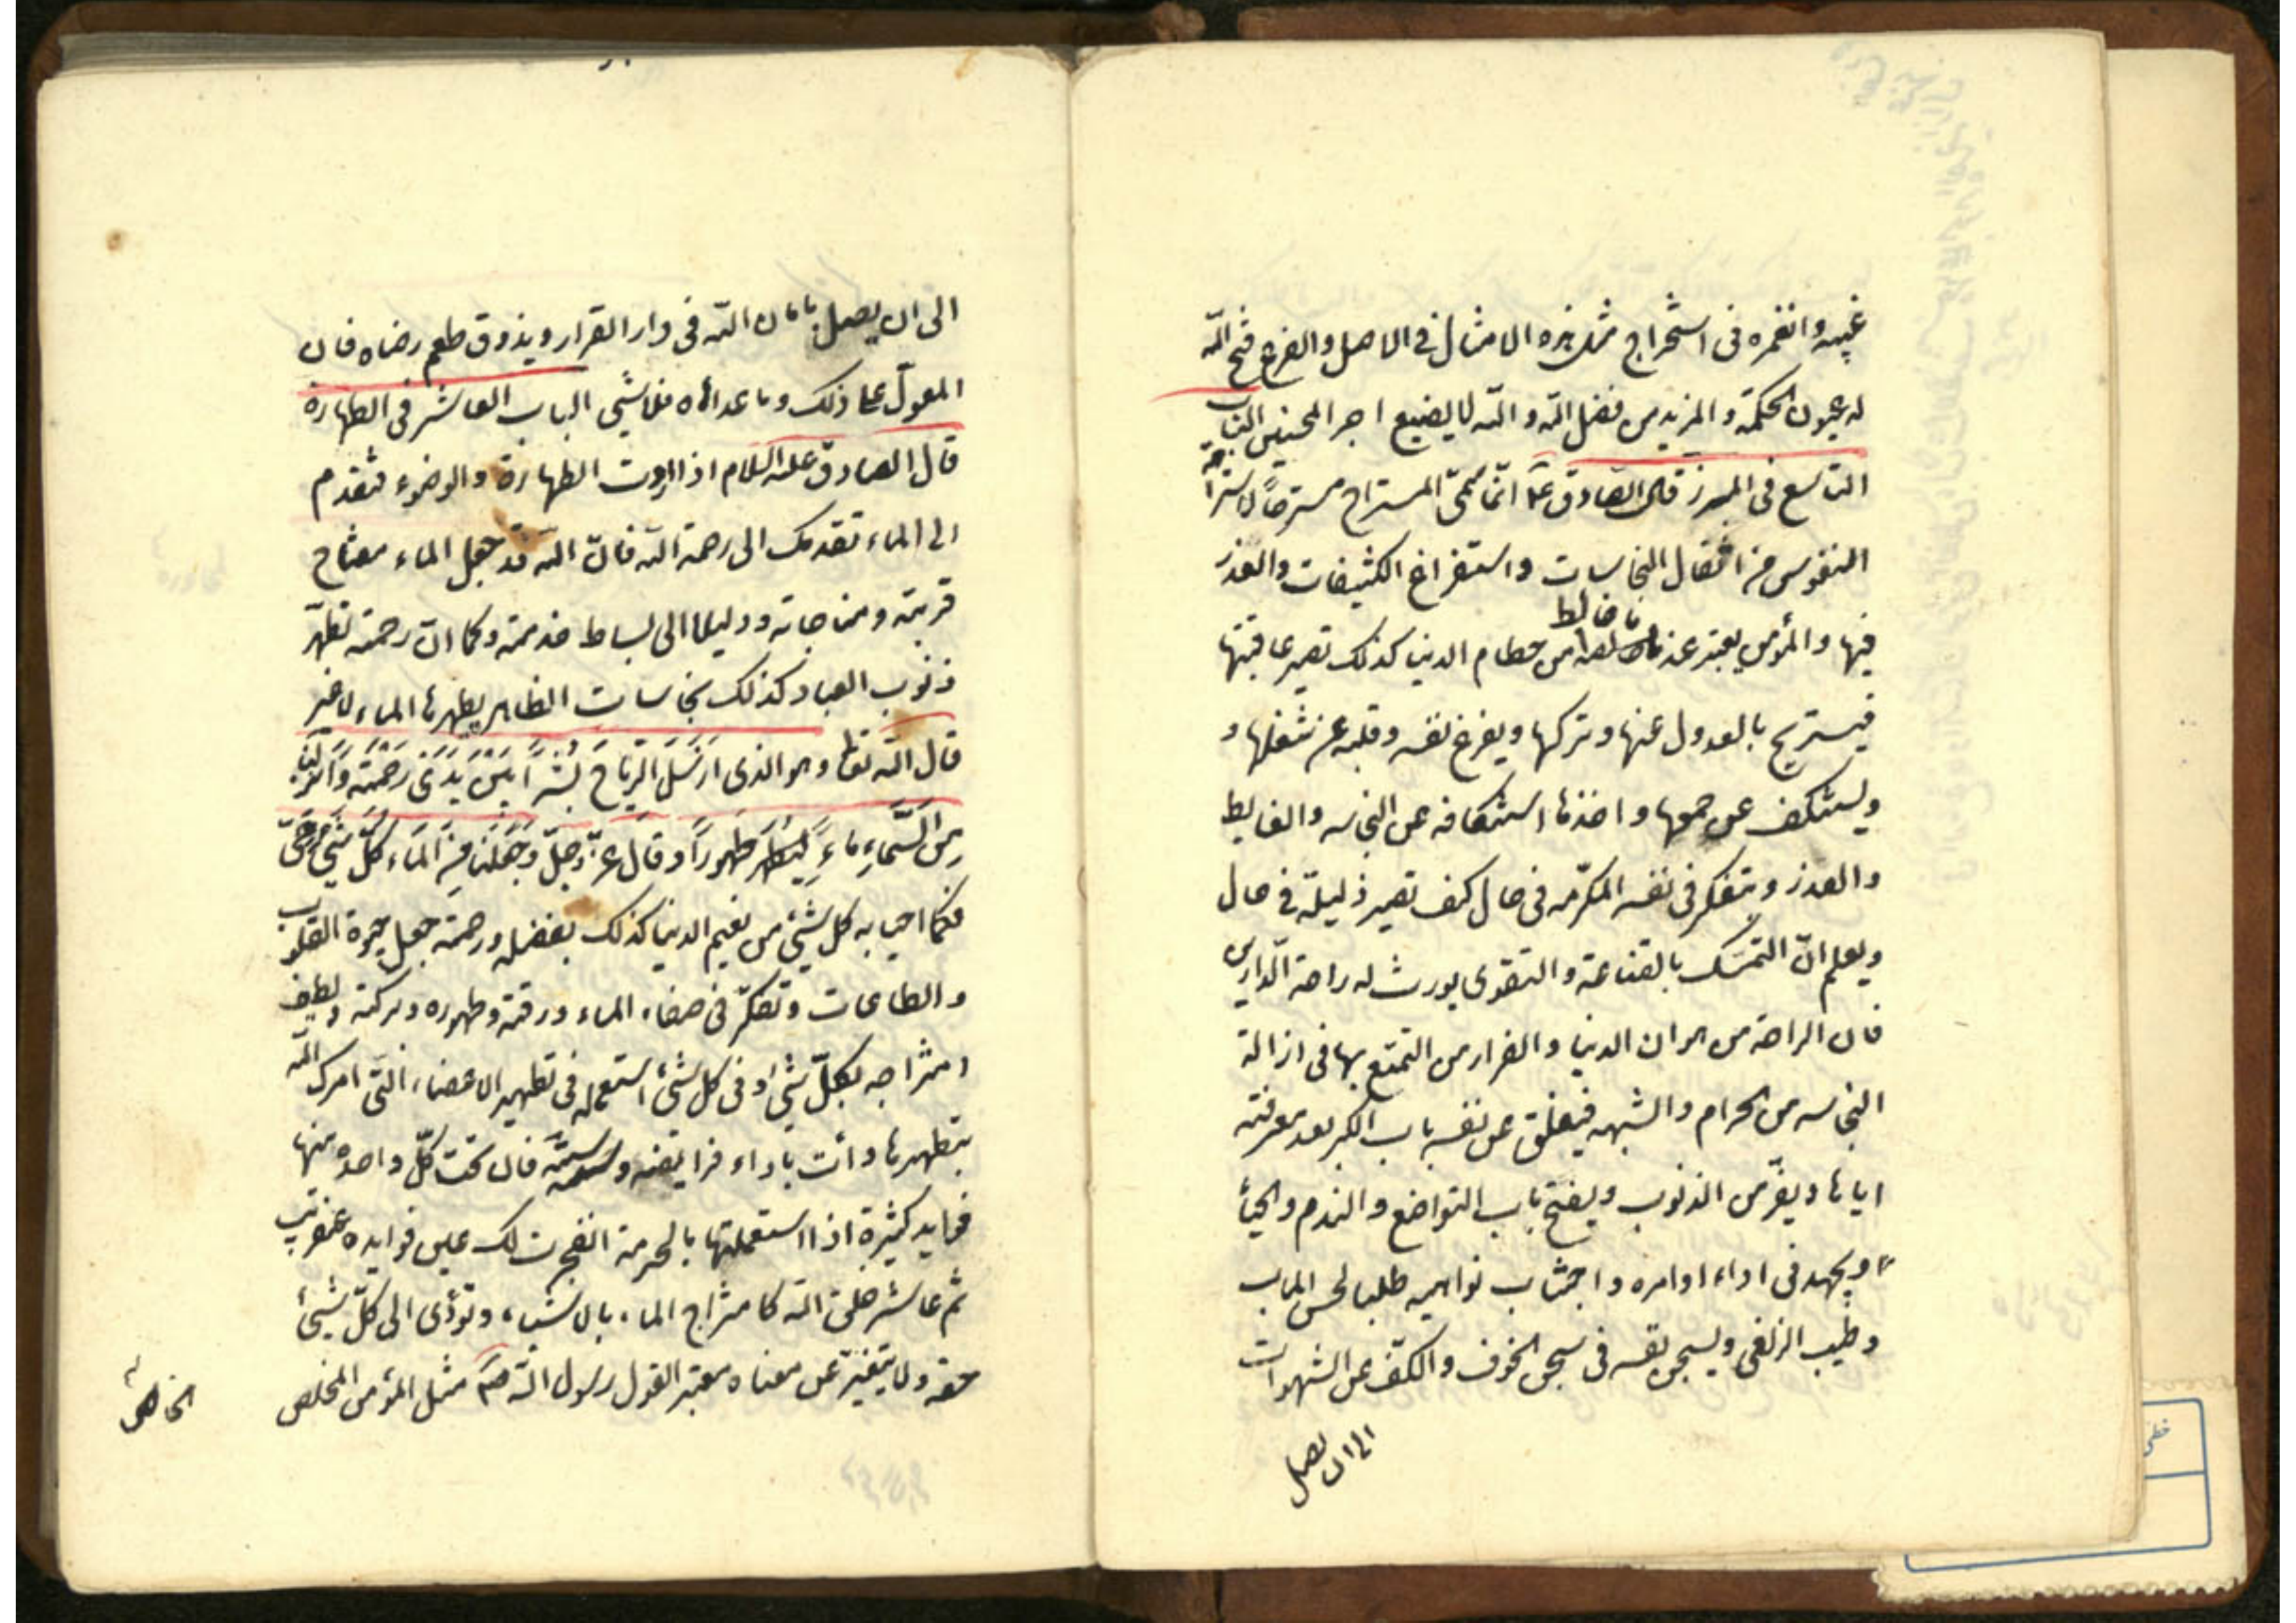 غيبه وانغمره فى استخراج مثل هذه الامثال فى الاصل والفرع فتح الله
له عيون الحكمة والمزيد من فضل الله والله لا يضيع اجر المحسنين الباب
التاسع فى المبرز قال الصادق ع انما سمى المستراح مستراحا لاستراحة
النفوس من اثقال النجاسات واستفراغ الكثيفات والقذر
فيها والمؤمن يعتبر عندها ان الخالص من حطام الدنيا كذلك تصير عاقبتها
فيستريح بالعدول عنها وتركها ويفرغ نفسه وقلبه عن شغلها و
ويستنكف عن جمعها واخذها استنكافه عن النجاسه والغايط
والقذر ويتفكر فى نفسه المكرمه فى حال كيف تصير ذليلة فى حال
ويعلم ان التمسك بالقناعة والتقوى يورث له راحة الدارين
فان الراحة من هوان الدنيا والفرار من التمتع بها فى ازالة
النجاسه من الحرام والشبهه فيغلق عن نفسه باب الكبر بعد معرفته
اياها ويفر من الذنوب ويفتح باب التواضع والندم والحيأ
ء ويجهد فى اداء اوامره واجتناب نواهيه طلبا لحسن الماب
وطيب الزلفى ويسجن نفسه فى سجن الخوف والكف عن الشهوات
الى ان يصل
الى ان يصل بامان الله فى دار القرار ويذوق طعم رضاه فان
المعول على ذلك وما عداه فلا شيى الباب العاشر فى الطهارة
قال الصادق عليه السلام اذا اردت الطهارة والوضوء فتقدم
الى الماء تقدمك الى رحمة الله فان الله قد جعل الماء مفتاح
قربته ومناجاته ودليلا الى بساط خدمته وكما ان رحمته تطهر
ذنوب العباد كذلك نجاسات الظاهر يطهرها الماء لا غير
قال الله تعا وهو الذى ارسل الرياح بشرا بين يدى رحمته وانزلنا
من السماء ماء طهورا وقال عز وجل وجعلنا من الماء كل شيئ حى
فكما احيا به كل شيئ من نعيم الدنيا كذلك بفضله ورحمته جعل حيوة القلوب
والطاعات وتفكر فى صفاء الماء ورقته وطهوره وبركته ولطيف
امتزاجه بكل شيئ وفى كل شيئ استعمله فى تطهير الاعضاء التى امرك الله
بتطهيرها وائت باداء فرايضه وسننه فان تحت كل واحده منها
فوايد كثيرة اذا استعملتها بالحرمة انفجرت لك عين فوايده عنقريب
ثم عاشر خلق الله كامتزاج الماء بالاشياء وتؤدى الى كل شيئ
حقه ولا يتغير عن معناه معتبر القول رسول الله ص مثل المؤمن المخلص
الخاص